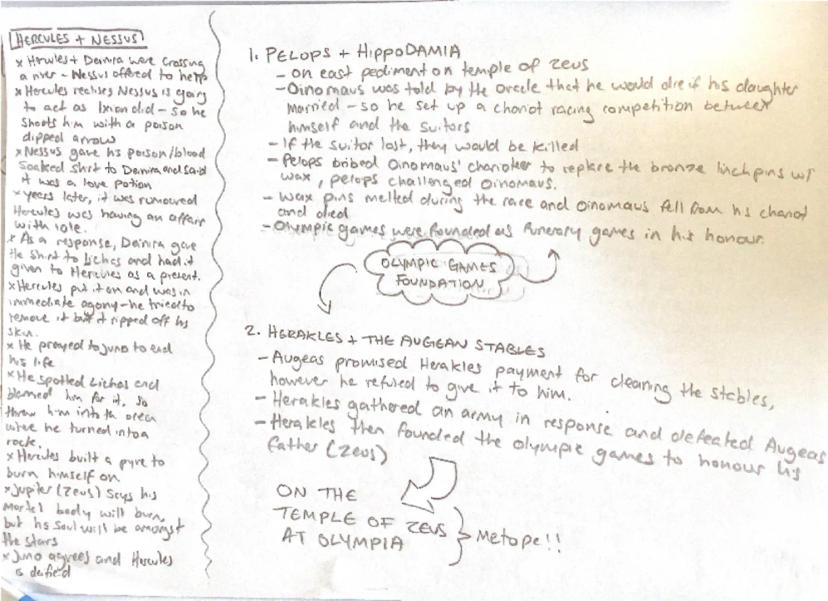 HERCULES + NESSUS
x Hercules + Deinira were crossing
a river - Nessus offered to help
x Hercules realises Nessus is going
to act as Ixion did - so he
shoots him with a poison
dipped arrow
x Nessus gave his poison/blood
soaked shirt to Deinira and said
it was a love potion
x years later, it was rumoured
Hercules was having an affair
with Iole.
x As a response, Deinira gave
the shirt to Lichas and had it
given to Hercules as a present.
x Hercules put it on and was in
immediate agony - he tried to
remove it but it ripped off his
skin.
x He prayed to Juno to end
his life
x He spotted Lichas and
blamed him for it, so
threw him into the ocean
where he turned into a
rock.
x Hercules built a pyre to
burn himself on
x Jupiter (Zeus) says his
mortal body will burn,
but his soul will be amongst
the stars
x Juno agrees and Hercules
is deified
1. PELOPS + HIPPODAMIA
- on east pediment on temple of zeus
- Oinomaus was told by the oracle that he would die if his daughter
married - so he set up a chariot racing competition between
himself and the suitors
- If the suitor lost, they would be killed
- Pelops bribed Oinomaus' charioteer to replace the bronze linchpins w/
wax, pelops challenged Oinomaus.
- Wax pins melted during the race and Oinomaus fell from his chariot
and died
- Olympic games were founded as funerary games in his honour.
OLYMPIC GAMES
FOUNDATION
2. HERAKLES + THE AUGEAN STABLES
- Augeas promised Herakles payment for cleaning the stables,
however he refused to give it to him.
- Herakles gathered an army in response and defeated Augeas
- Herakles then founded the olympic games to honour his
father (Zeus)
ON THE
TEMPLE OF ZEUS
AT OLYMPIA
Metope!!